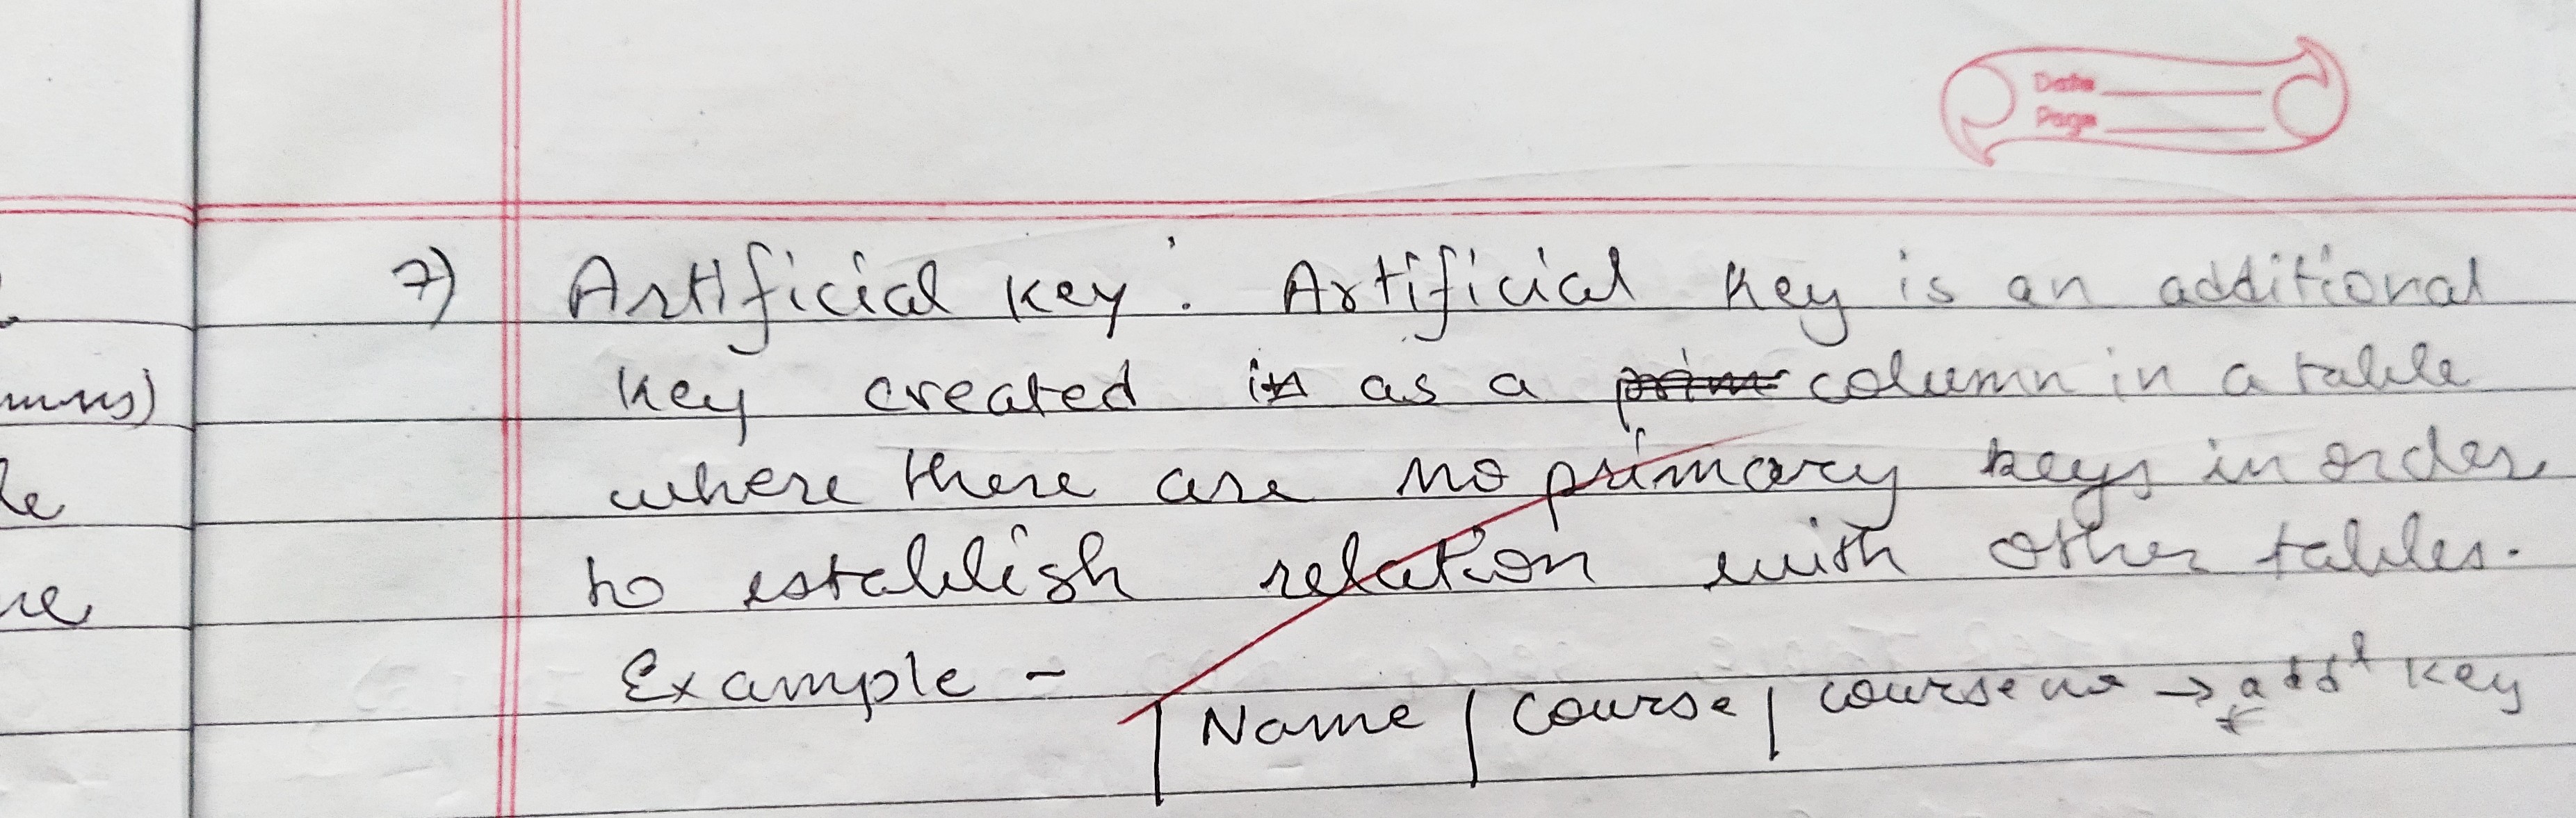 Date
Page
7) Artificial key: Artificial key is an additional
mns) key created as a column in a table
le where there are no primary keys in order
ne to establish relation with other tables.
Example -
| Name | Course | course no → add^l key